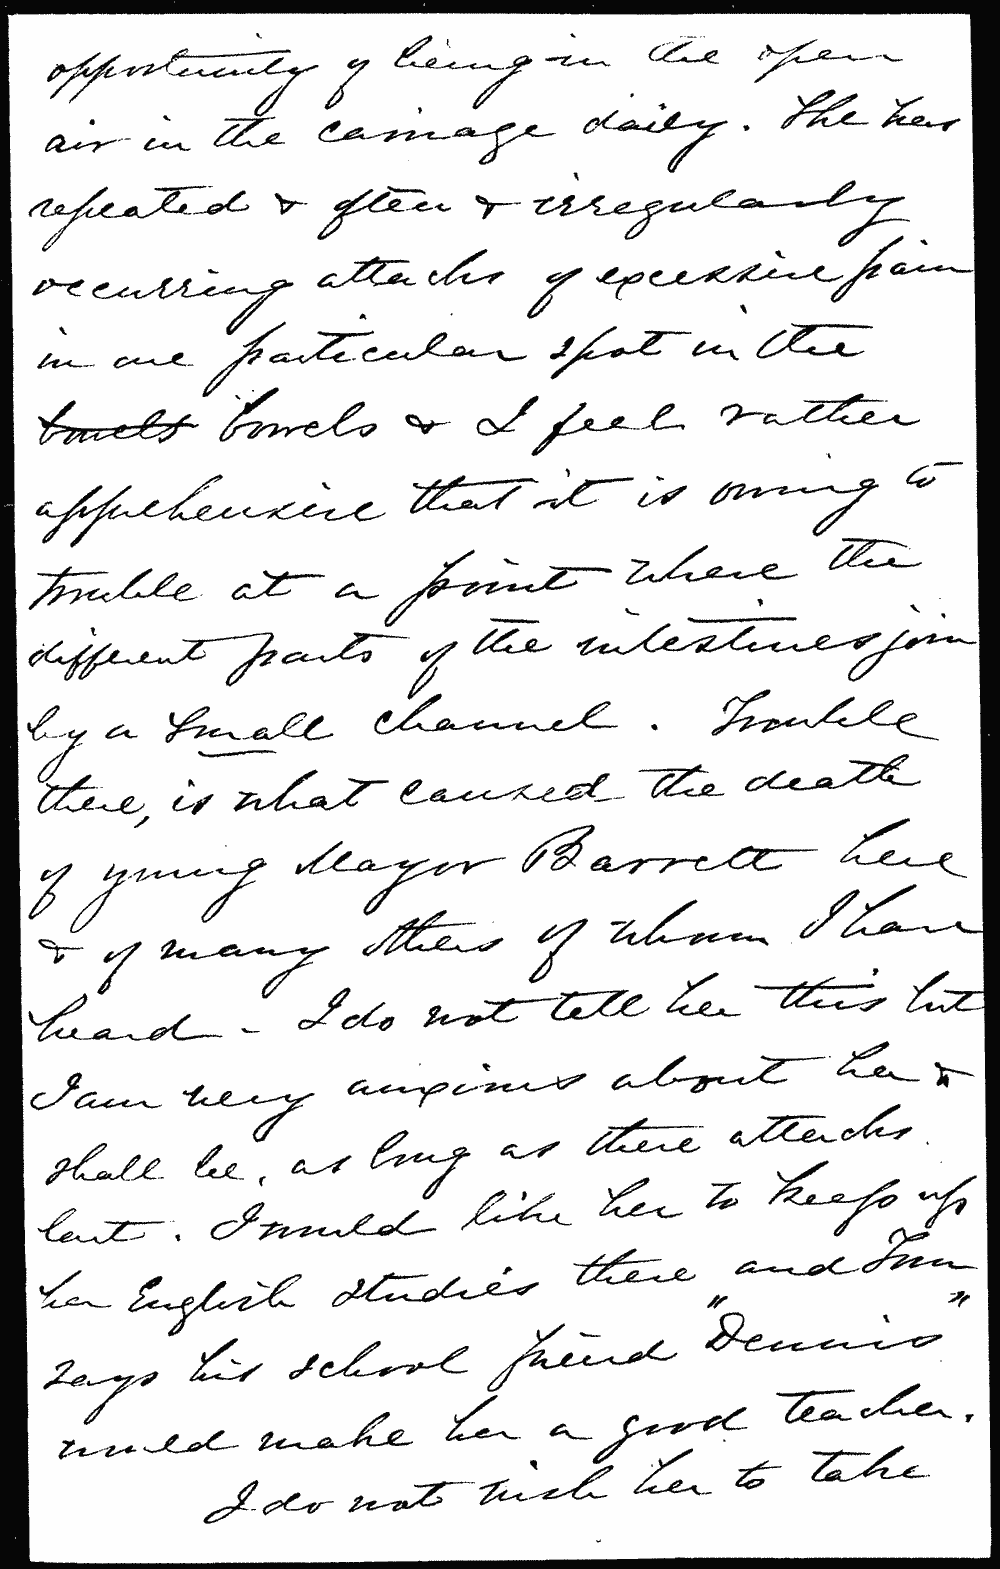 opportunity of being in the open
air in the carriage daily. She has
repeated & often & irregularly
occurring attacks of excessive pain
in one particular spot in the
bowels bowels & I feel rather
apprehensive that it is owing to
trouble at a point where the
different parts of the intestines join
by a small channel. Trouble
there, is what caused the death
of young Mayor Barrett here
& of many others of whom I have
heard - I do not tell her this but
I am very anxious about her &
shall be, as long as these attacks
last. I would like her to keep up
her English studies there and Tom
says his school friend "Dennis"
would make her a good teacher.
I do not wish her to take